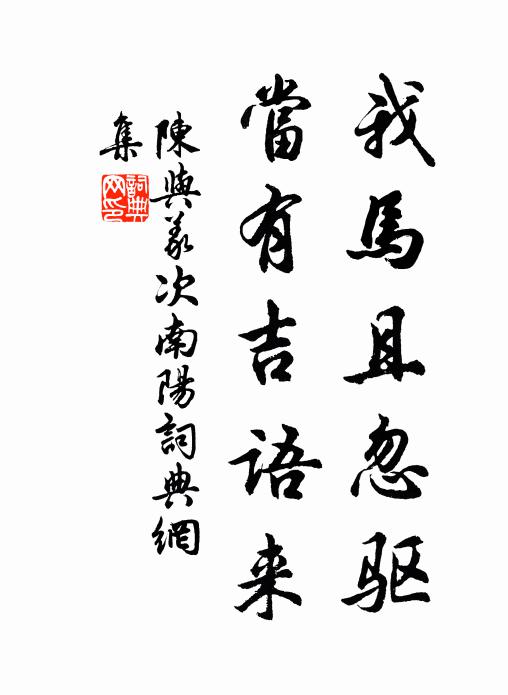 我馬且忽驱
當有吉语来
陳與義次南陽詞典網
集
詞典
网印